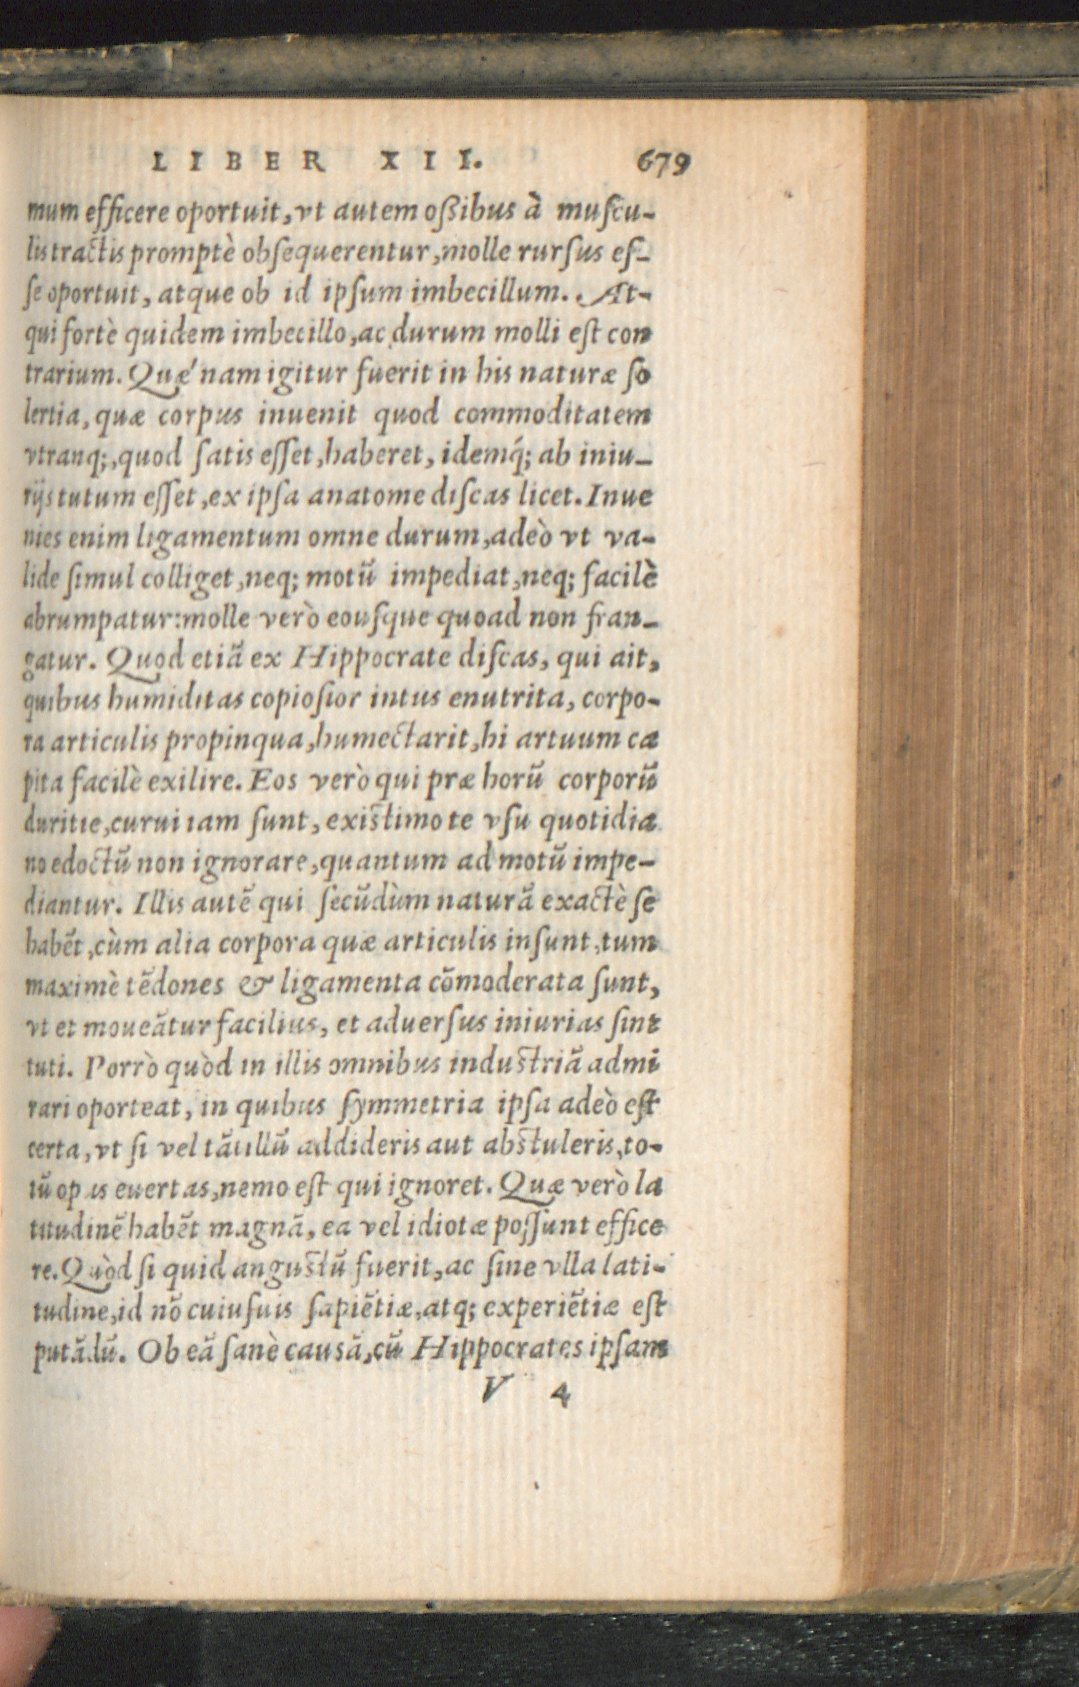 LIBER XII. 679
mum efficere oportuit, vt autem oßibus à muscu-
lis tractis promptè obsequerentur, molle rursus es-
se oportuit, atque ob id ipsum imbecillum. At-
qui fortè quidem imbecillo, ac durum molli est con
trarium. Quæ nam igitur fuerit in his naturæ so
lertia, quæ corpus inuenit quod commoditatem
vtranq;, quod satis esset, haberet, idemq́; ab iniu-
rijs tutum esset, ex ipsa anatome discas licet. Inue
nies enim ligamentum omne durum, adeò vt va-
lide simul colliget, neq; motū impediat, neq; facilè
abrumpatur: molle verò eousque quoad non fran-
gatur. Quod etiā ex Hippocrate discas, qui ait,
quibus humiditas copiosior intus enutrita, corpo-
ra articulis propinqua, humectarit, hi artuum ca
pita facilè exilire. Eos verò qui præ horū corporū
duritie, curui iam sunt, existimo te vsu quotidia
no edoctū non ignorare, quantum ad motū impe-
diantur. Illis autē qui secūdùm naturā exactè se
habēt, cùm alia corpora quæ articulis insunt, tum
maximè tēdones & ligamenta cōmoderata sunt,
vt et moueātur facilius, et aduersus iniurias sint
tuti. Porrò quòd in illis omnibus industriā admi
rari oporteat, in quibus symmetria ipsa adeò est
certa, vt si vel tātillū addideris aut abstuleris, to-
tū opus euertas, nemo est qui ignoret. Quæ verò la
titudinē habēt magnā, ea vel idiotæ possunt effice
re. Quòd si quid angustū fuerit, ac sine vlla lati-
tudine, id nō cuiusuis sapiētiæ, atq; experiētiæ est
putādū. Ob eā sanè causā, cū Hippocrates ipsam
V 4